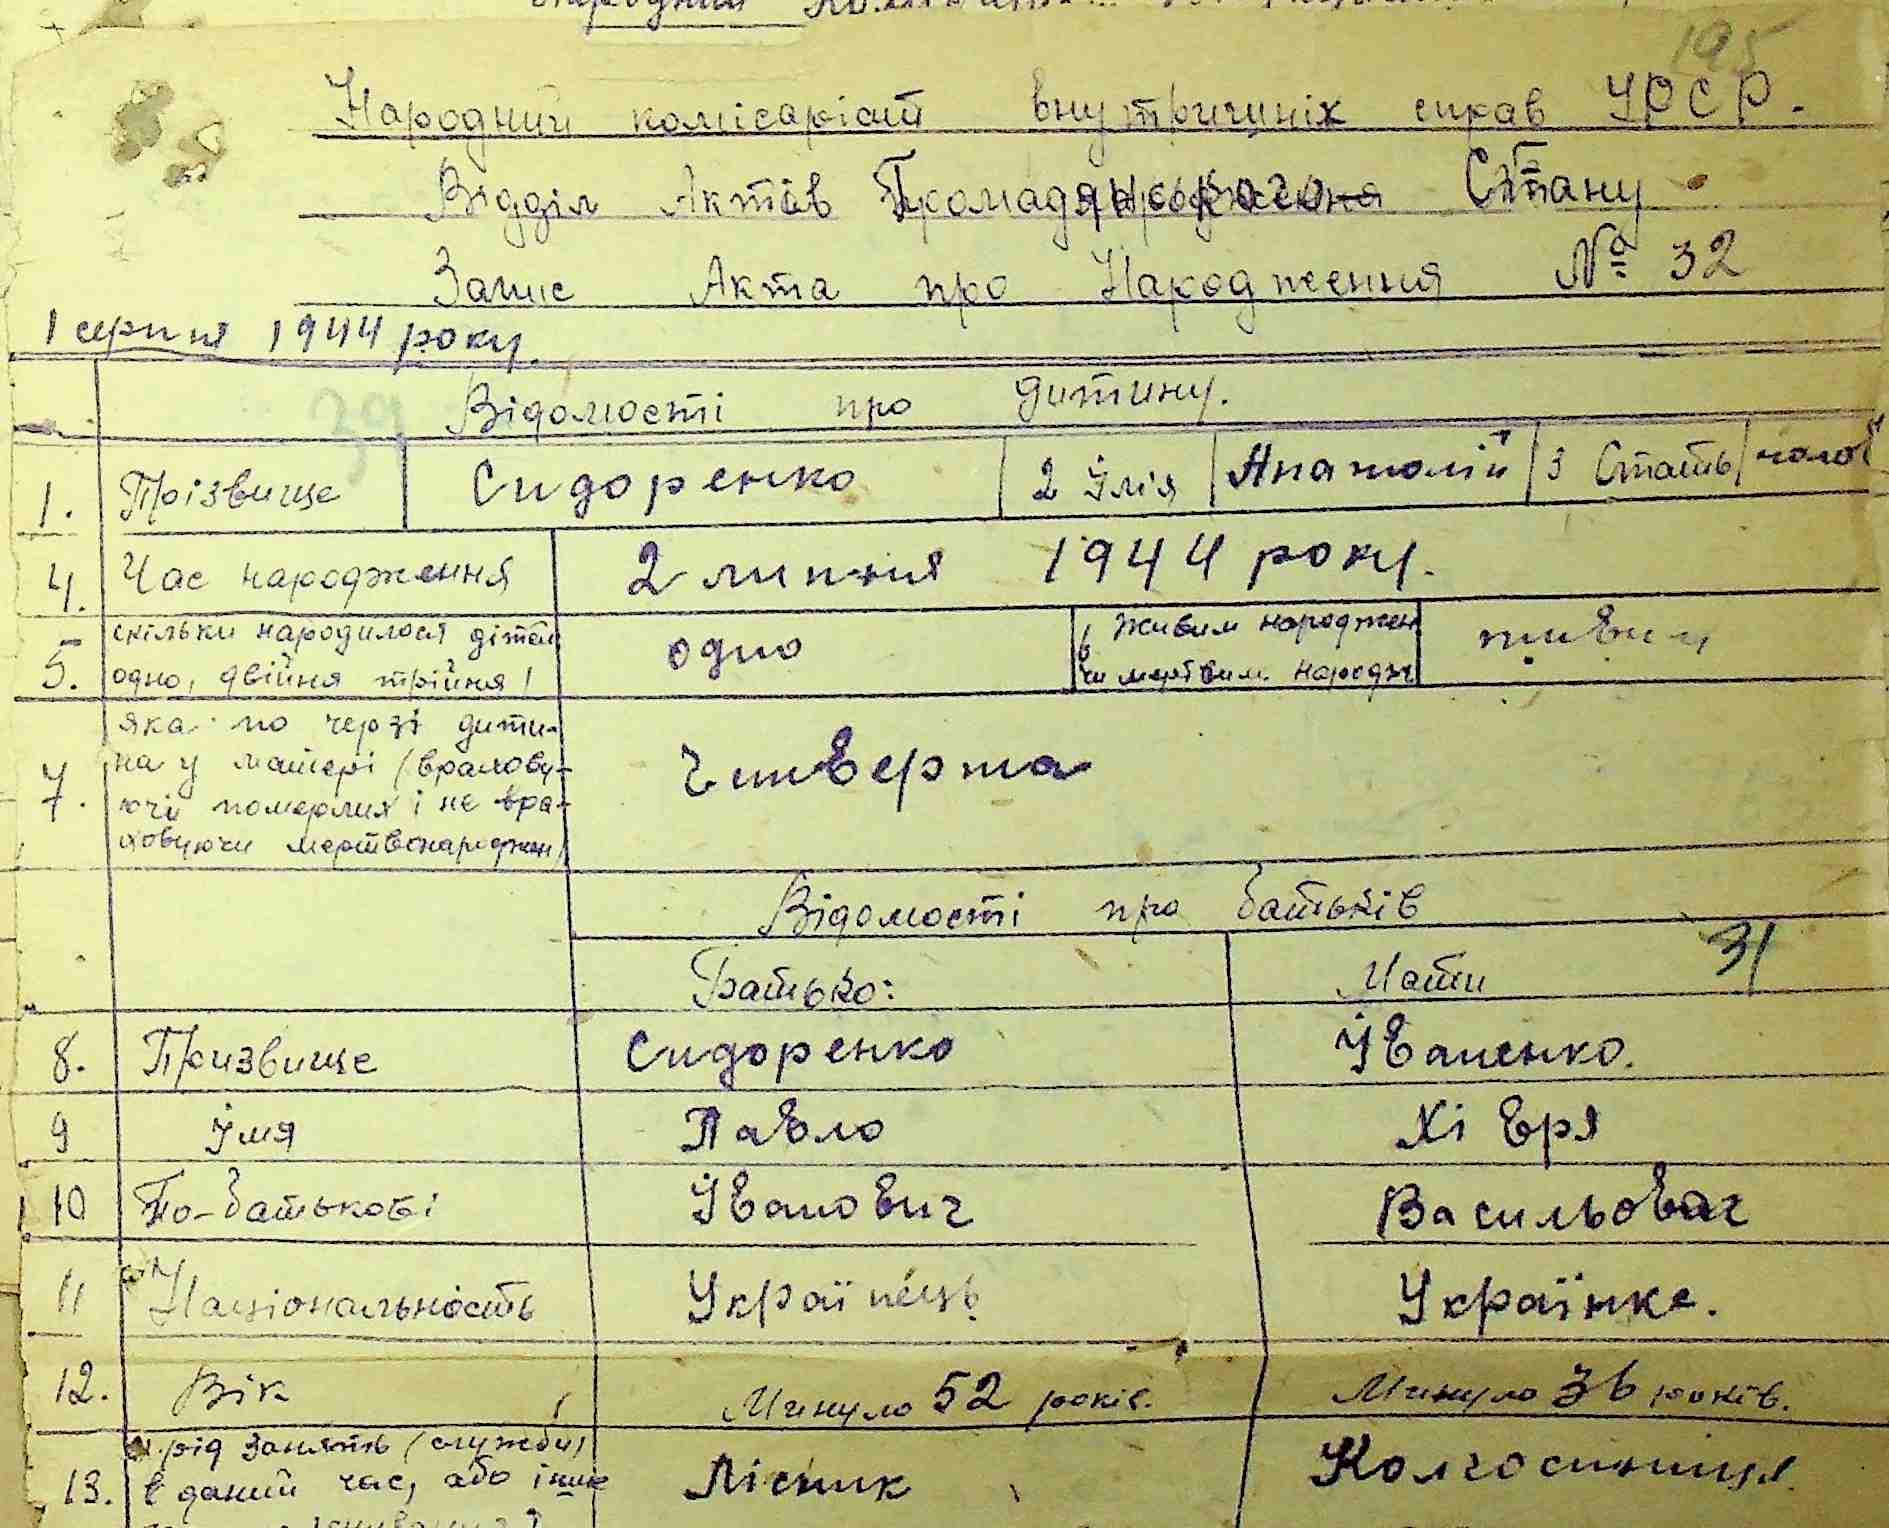 195
Народний комісаріат внутришніх справ УРСР.
Відділ Актів Громадянського Стану
Запис Акта про Народження № 32
1 серпня 1944 року.
39
Відомості про дитину.
1. Прізвище Сидоренко 2 Імя Анатолій 3 Стать чолов
4. Час народження 2 липня 1944 року.
5. скільки народилося дітей одно 6 Живим народжен живим
одно, двійня трійня / чи мертвим народж
яка по черзі дити-
7. на у матері (врахову- Читверта
ючи померлих і не вра-
ховуючи мертвонароджен/
Відомості про батьків
31
Батько: Мати
8. Призвище Сидоренко Іваненко.
9 Імя Павло Хі вря
10 По-батькові Іванович Васильовач
11 Національность Українець. Українке.
12. Вік Минуло 52 років. Минуло 36 років.
рід занять (служби)
13. в даний час, або інше Лісник Колгоспниця.